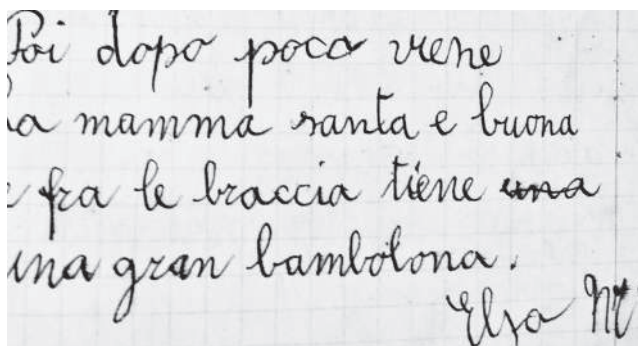 Poi dopo poco viene
la mamma santa e buona
e fra le braccia tiene una
una gran bambolona.
Elsa M